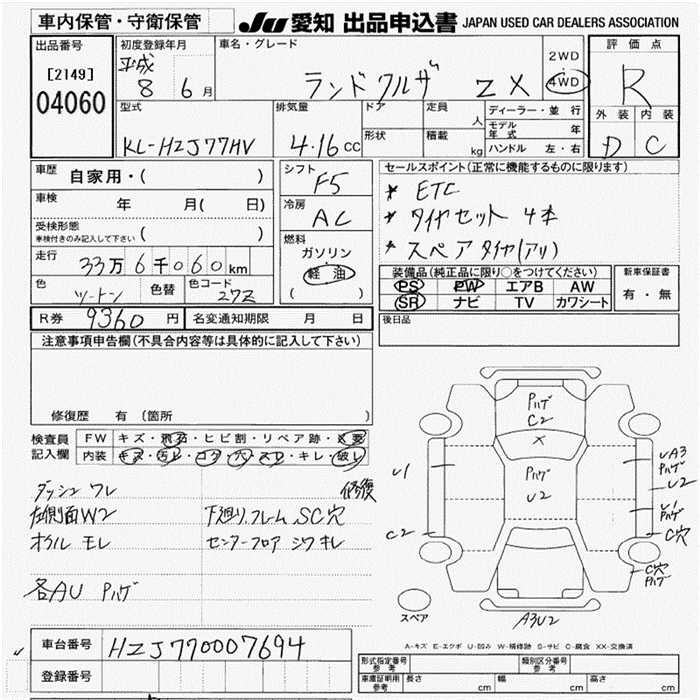 車内保管・守衛保管
JU 愛知 出品申込書 JAPAN USED CAR DEALERS ASSOCIATION
出品番号
[2149]
04060
初度登録年月
平成 8 6月
車名・グレード
ランドクルザ ZX
2WD
4WD
評価点
R
外装 内装
D C
型式
KL-HZJ77HV
排気量
4.16 cc
ドア
形状
定員 人
積載 kg
ディーラー・並行
モデル年式 年
ハンドル 左・右
車歴 自家用・( )
車検 年 月( 日)
受検形態
車検付きのみ記入して下さい ( )
走行 33万6千060km
色 ツートン 色替 色コード 27Z
シフト F5
冷房 AC
燃料
ガソリン
軽油
( )
セールスポイント(正常に機能するものに限ります)
* ETC
* タイヤセット 4本
* スペアタイヤ(アリ)
装備品(純正品に限り○をつけてください)
PS PW エアB AW
SR ナビ TV カワシート
新車保証書
有・無
R券 9360円 名変通知期限 月 日
後日品
注意事項申告欄(不具合内容等は具体的に記入して下さい)
修復歴 有(箇所 )
検査員記入欄
FW キズ・飛石・ヒビ割・リペア跡・X要
内装 キズ・汚レ・コゲ・穴・スレ・キレ・破レ
ダッシュ ワレ 修復
左側面W2 下廻り、フレーム SC穴
オイル モレ センターフロア シワ キレ
各AU Pハゲ
Pハゲ
C2
X
Pハゲ
U2
U1
C2
UA3
Pハゲ
U2
U1
Pハゲ
C穴
C穴
Pハゲ
スペア
A3U2
A-キズ E-エクボ U-凹み W-補修跡 S-サビ C-腐食 XX-交換済
車台番号 HZJ770007694
登録番号
型式指定番号 参考
類別区分番号 参考
車庫証明用 参考 長さ cm 幅 cm 高さ cm